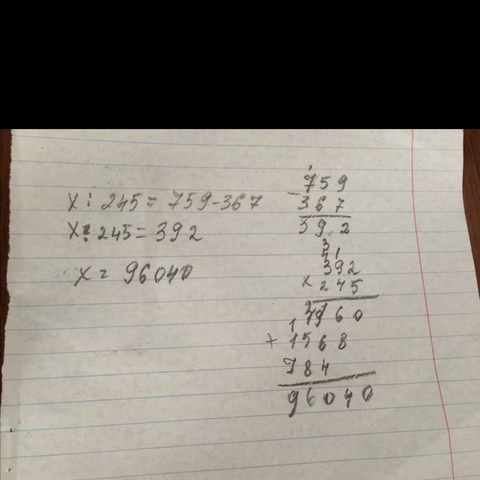 x : 245 = 759 - 367
x : 245 = 392
x = 96040
759
- 367
392
392
x 245
1960
+ 1568
784
96040